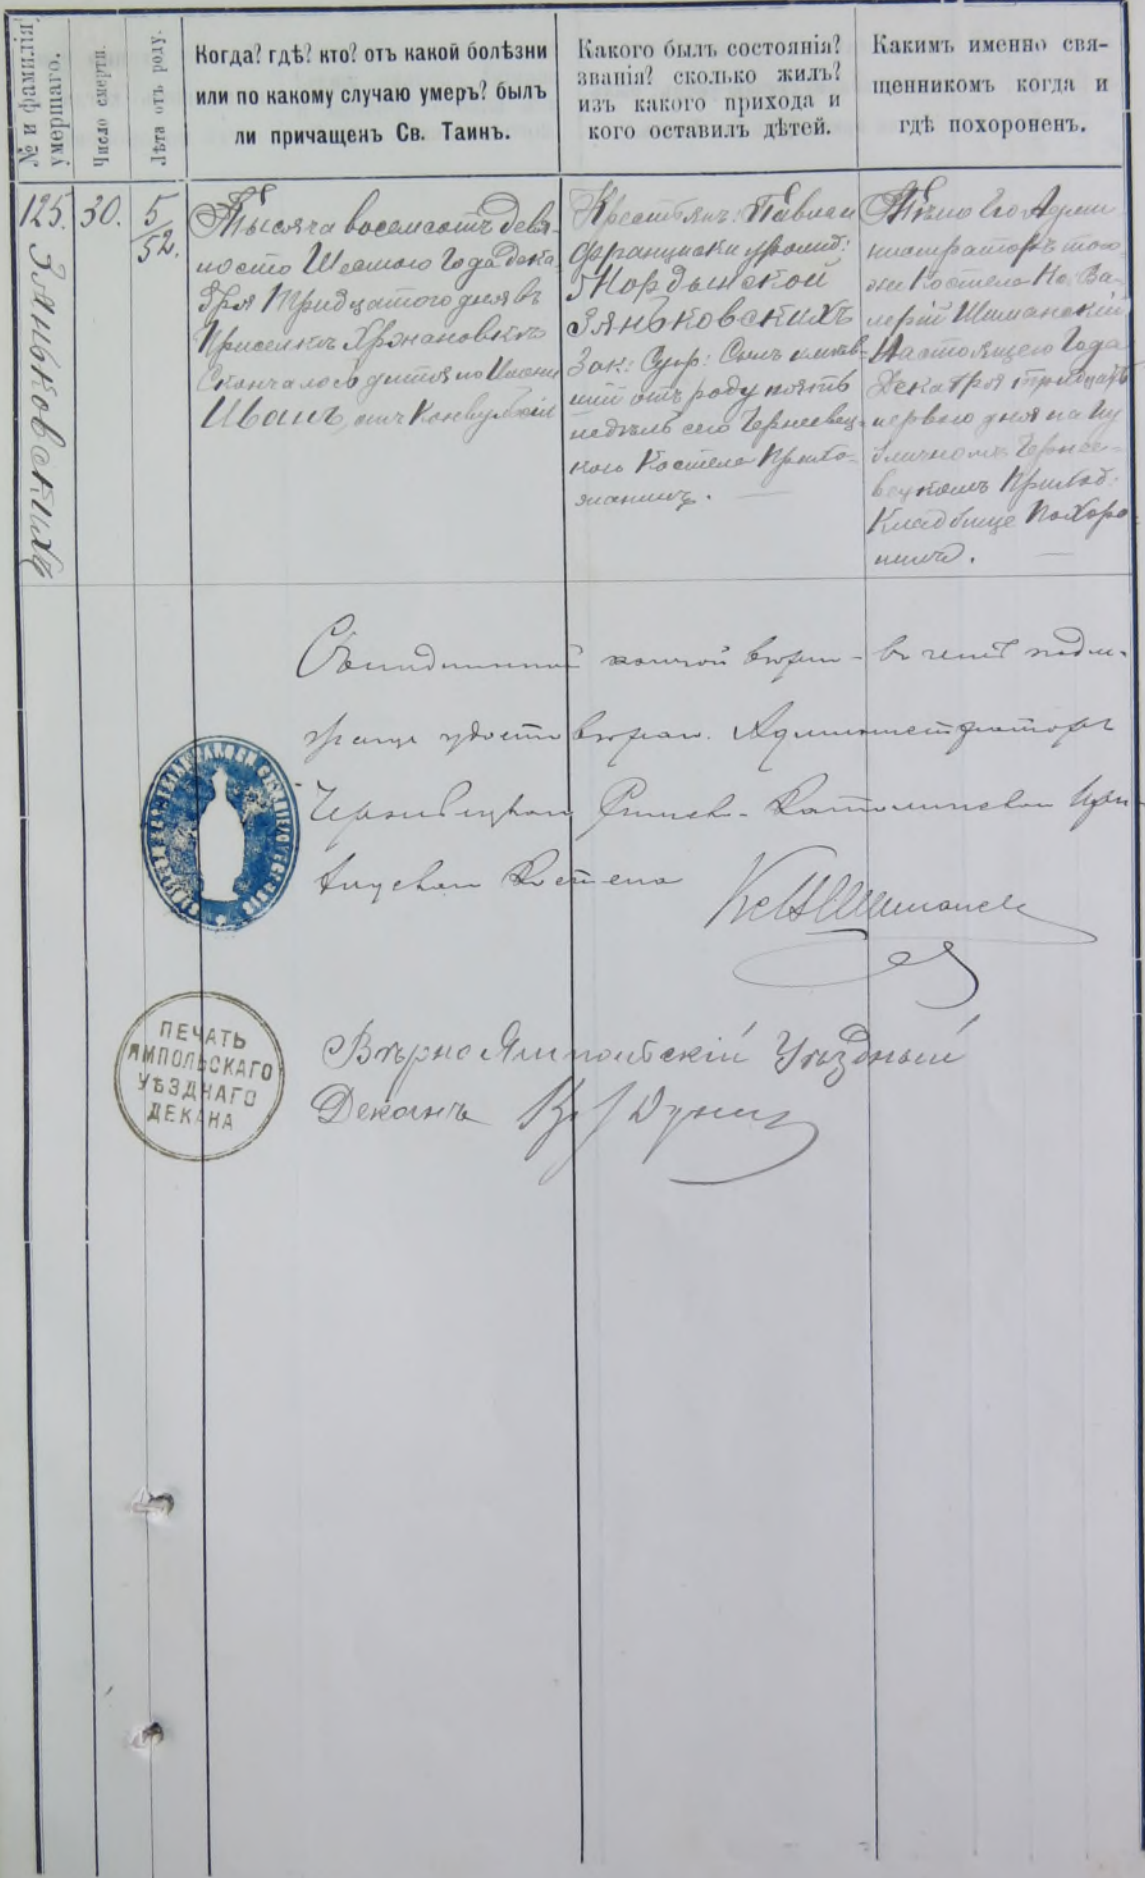 № и фамилія
умершаго.
Число смерти.
Лѣта отъ роду.
Когда? гдѣ? кто? отъ какой болѣзни
или по какому случаю умеръ? былъ
ли причащенъ Св. Таинъ.
Какого былъ состоянія?
званія? сколько жилъ?
изъ какого прихода и
кого оставилъ дѣтей.
Какимъ именно свя-
щенникомъ когда и
гдѣ похороненъ.
125.
Зяньковскихъ
30.
5/52.
Тысяча восемсотъ девя-
носто Шестого Года Дека
бря Тридцатого дня въ
Приселкѣ Хрэнановкѣ
Скончалось дитя по Имени
Иванъ, отъ Конвульсіи
Крестьянъ: Павла и
Франциски урожд:
Мордынской
Зяньковскихъ
Зак: Супр: Сынъ имѣв-
шій отъ роду пять
недѣль сего Чернеевец-
кого Костела Прихо-
жанинъ.
Тѣло Его Админи
нистраторъ того
же Костела Кс. Ва-
лерій Шиманскій
Настоящего Года
Декабря тридцать
первого дня на Пу
бличномъ Чернее-
вецкомъ Приход:
Кладбище Похоро
нилъ.
вѣрна - въ чемъ подпи-
Администраторъ
Римско-Католическаго При-
Костела
Кс В Шиманск
ПЕЧАТЬ
ЯМПОЛЬСКАГО
УѢЗДНАГО
ДЕКАНА
Вѣрно Ямпольскій Уѣздный
Деканъ